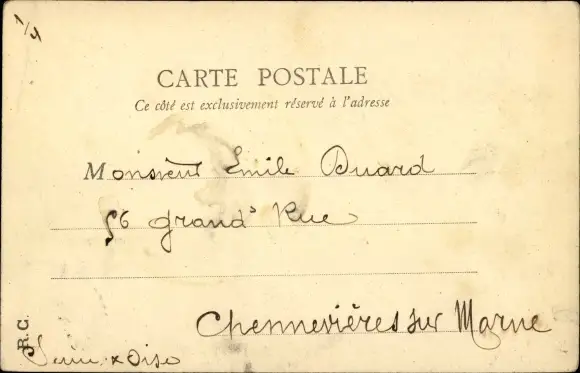 1/4
CARTE POSTALE
Ce côté est exclusivement réservé à l'adresse
Monsieur Emile Duard
56 grand's Rue
Chennevières sur Marne
R.C.
Seine & Oise